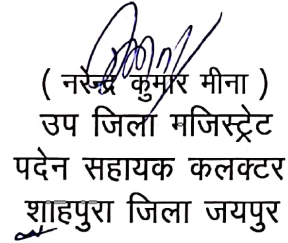 ( नरेन्द्र कुमार मीना )
उप जिला मजिस्ट्रेट
पदेन सहायक कलक्टर
शाहपुरा जिला जयपुर